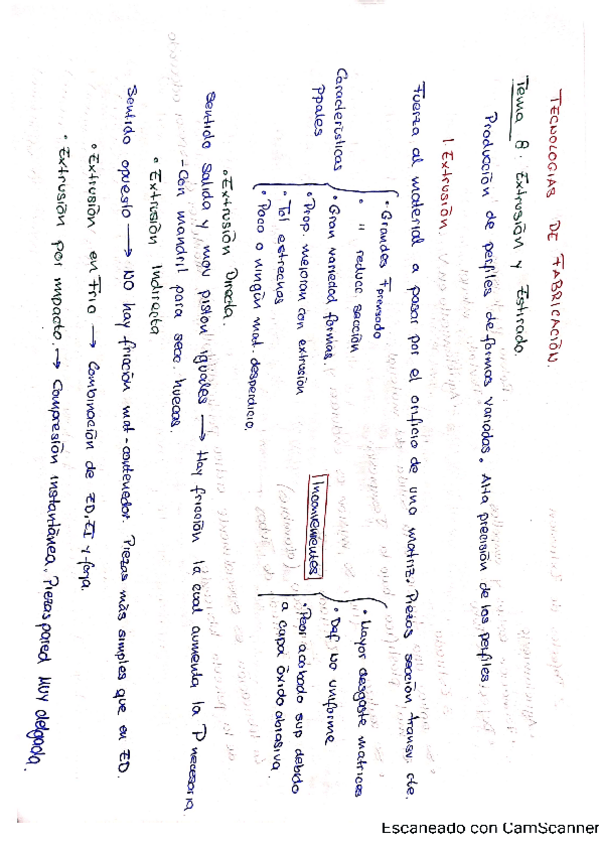 TECNOLOGÍAS DE FABRICACIÓN.
Tema 8: Extrusión y Estirado.
Producción de perfiles de formas variadas. Alta precisión de los perfiles.
1. Extrusión.
Fuerza al material a pasar por el orificio de una matriz. Piezas sección transv. cte.
Características ppales
• Grandes F prensado
• " reducc sección
• Gran variedad formas.
• Prop. mejoran con extrusión
• Tol estrechas
• Poco o ningún mat. desperdicio.
Inconvenientes
• Mayor desgaste matrices
• Def No uniforme
• Peor acabado sup debido
a capa óxido abrasiva.
• Extrusión Directa.
Sentido salida y mov piston iguales → Hay fricción la cual aumenta la P necesaria
- Con mandril para secc. huecas.
• Extrusión Indirecta
Sentido opuesto → NO hay fricción mat-contenedor. Piezas más simples que en ED.
• Extrusión en Frío → Combinación de ED, EI y forja.
• Extrusión por impacto. → Compresión instantánea. Piezas pared MUY delgada.
Escaneado con CamScanner